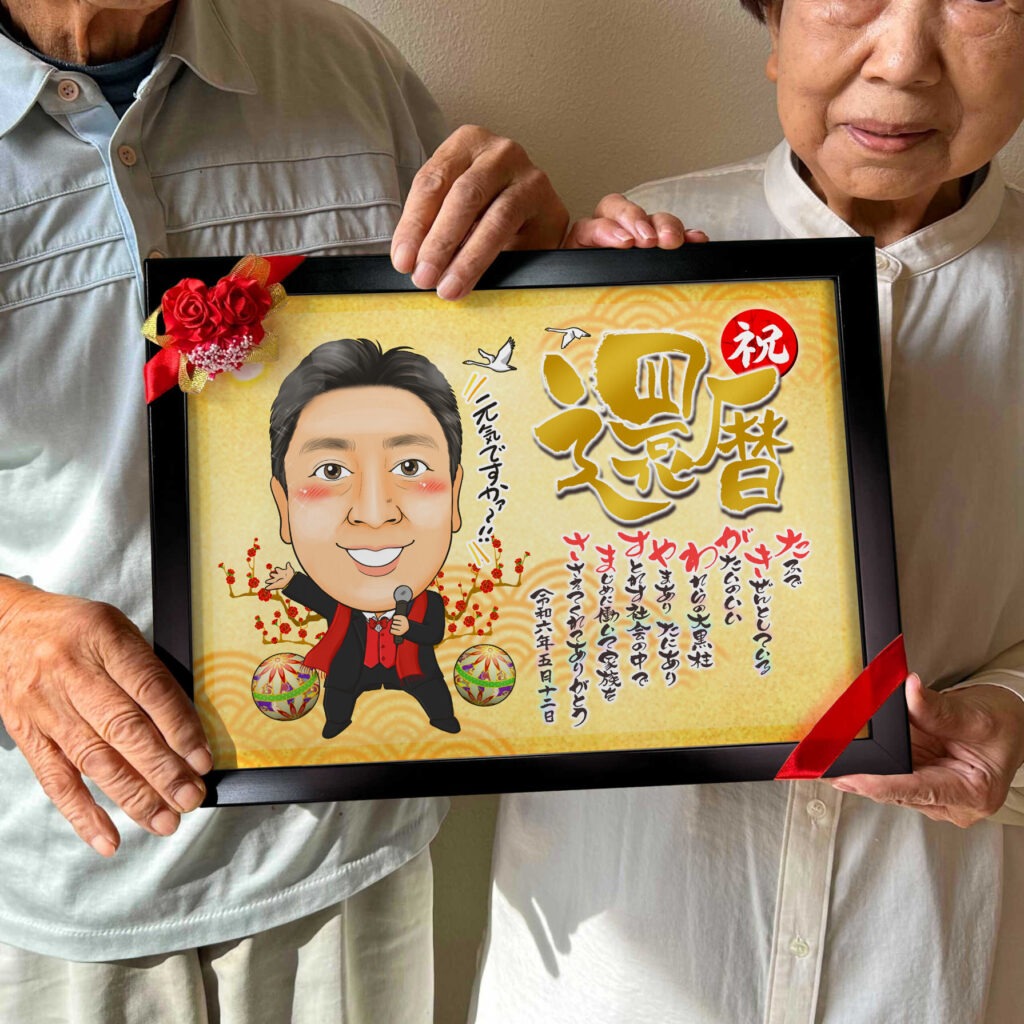 祝
還暦
元気ですかァ〜!!
たふで
きぜんとしている
がたいのいい
われらの大黒柱
やまあり たにあり
すとれす社会の中で
まじめに働いて家族を
ささえてくれてありがとう
令和六年五月十二日